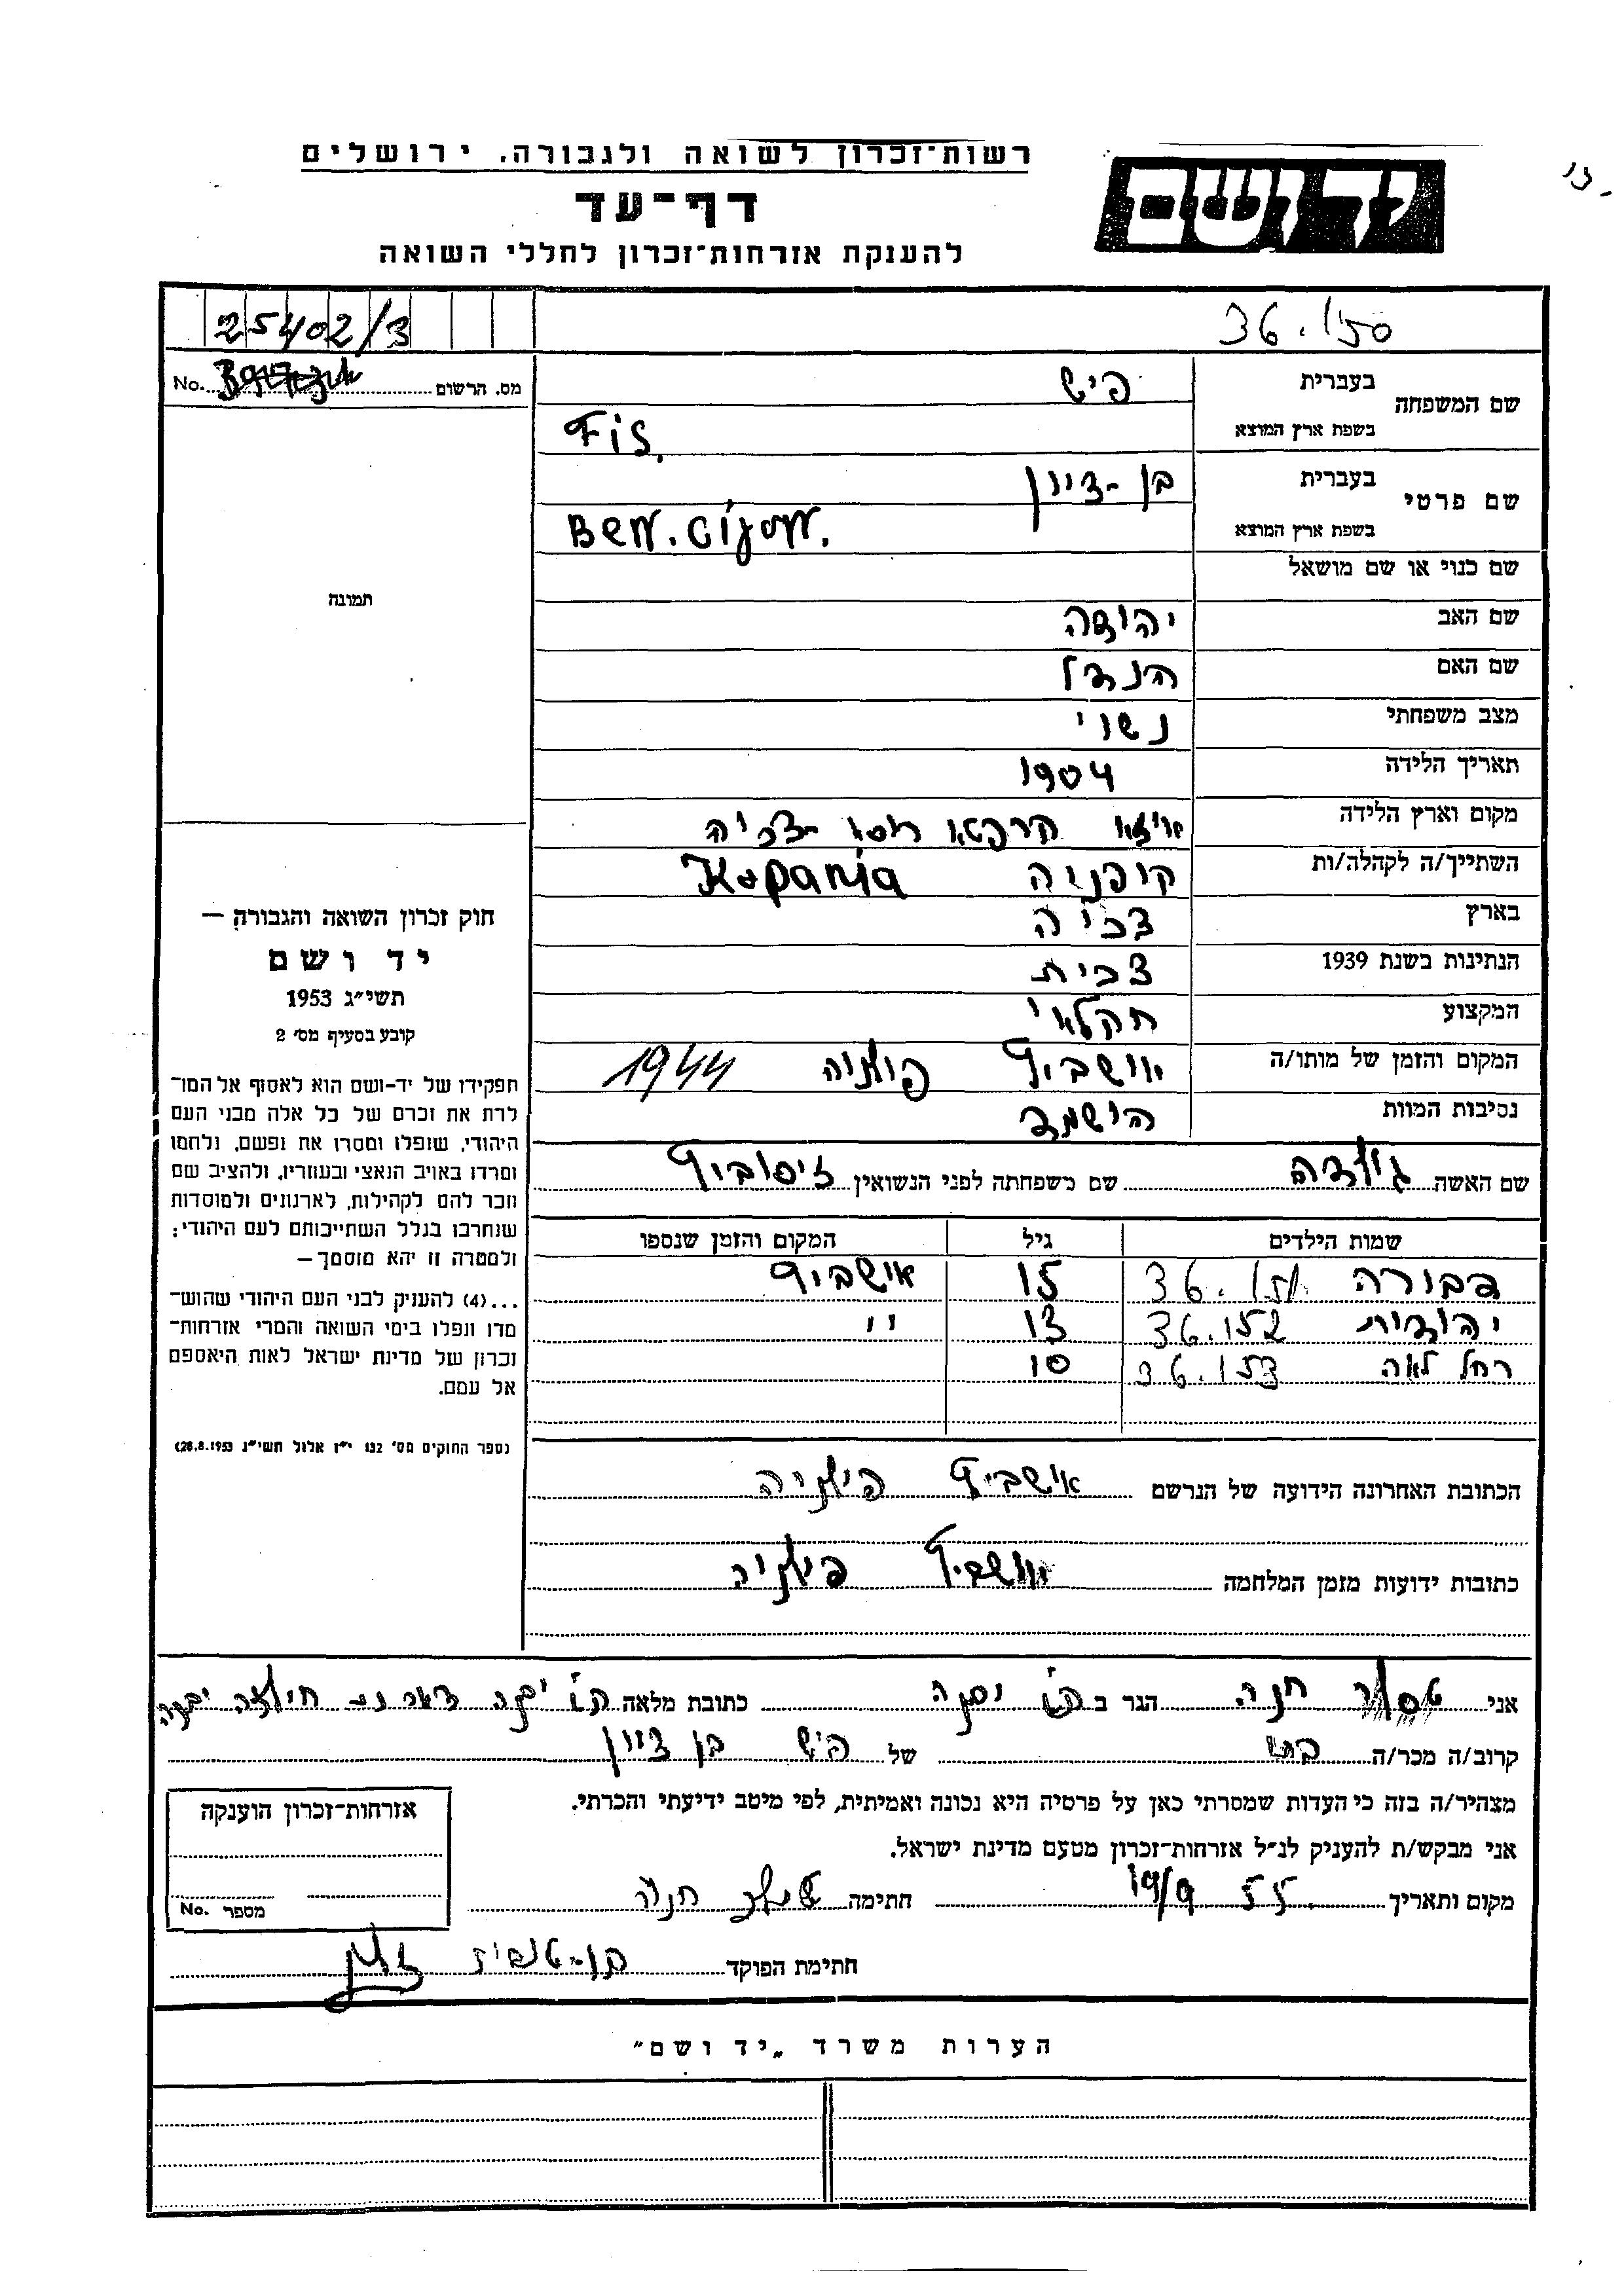 רשות־זכרון לשואה ולגבורה, ירושלים
יד ושם
דף־עד
להענקת אזרחות־זכרון לחללי השואה
25402/3
36.150
מס. הרשום No.
שם המשפחה
בעברית פיש
בשפת ארץ המוצא Fis.
שם פרטי
בעברית בן-ציון
בשפת ארץ המוצא Ben.Cijon.
שם כנוי או שם מושאל
שם האב יהודה
שם האם הנדל
מצב משפחתי נשוי
תאריך הלידה 1904
מקום וארץ הלידה קרפטו רוסו -צכיה
השתייך/ה לקהלה/ות קופניה Kopania
בארץ צכיה
הנתינות בשנת 1939 צכית
המקצוע חקלאי
המקום והזמן של מותו/ה אושביץ פולניה 1944
נסיבות המוות הושמד
שם האשה גולדה שם משפחתה לפני הנשואין זיסוביץ
שמות הילדים גיל המקום והזמן שנספו
דבורה 36.151 15 אושביץ
יהודית 36.152 13 יי
רחל לאה 36.153 10
הכתובת האחרונה הידועה של הנרשם אושביץ פולניה
כתובות ידועות מזמן המלחמה אושביץ פולניה
תמונה
חוק זכרון השואה והגבורה —
יד ושם
תשי״ג 1953
קובע בסעיף מס׳ 2
תפקידו של יד-ושם הוא לאסוף אל המו־
לדת את זכרם של כל אלה מבני העם
היהודי, שנפלו ומסרו את נפשם, נלחמו
ומרדו באויב הנאצי ובעוזריו, ולהציב שם
וזכר להם לקהילות, לארגונים ולמוסדות
שנחרבו בגלל השתייכותם לעם היהודי;
ולמטרה זו יהא מוסמך—
...(4) להעניק לבני העם היהודי שהוש־
מדו ונפלו בימי השואה והמרי אזרחות־
זכרון של מדינת ישראל לאות היאספם
אל עמם.
(ספר החוקים מס׳ 132 י״ז אלול תשי״ג 28.8.1953)
אני חנה הגר ב כתובת מלאה
קרוב/ה מכר/ה בת של פיש בן ציון
מצהיר/ה בזה כי העדות שמסרתי כאן על פרטיה היא נכונה ואמיתית, לפי מיטב ידיעתי והכרתי.
אני מבקש/ת להעניק לנ״ל אזרחות־זכרון מטעם מדינת ישראל.
מקום ותאריך 19/9 55 חתימה חנה
חתימת הפוקד
אזרחות־זכרון הוענקה
מספר No.
הערות משרד „יד ושם״